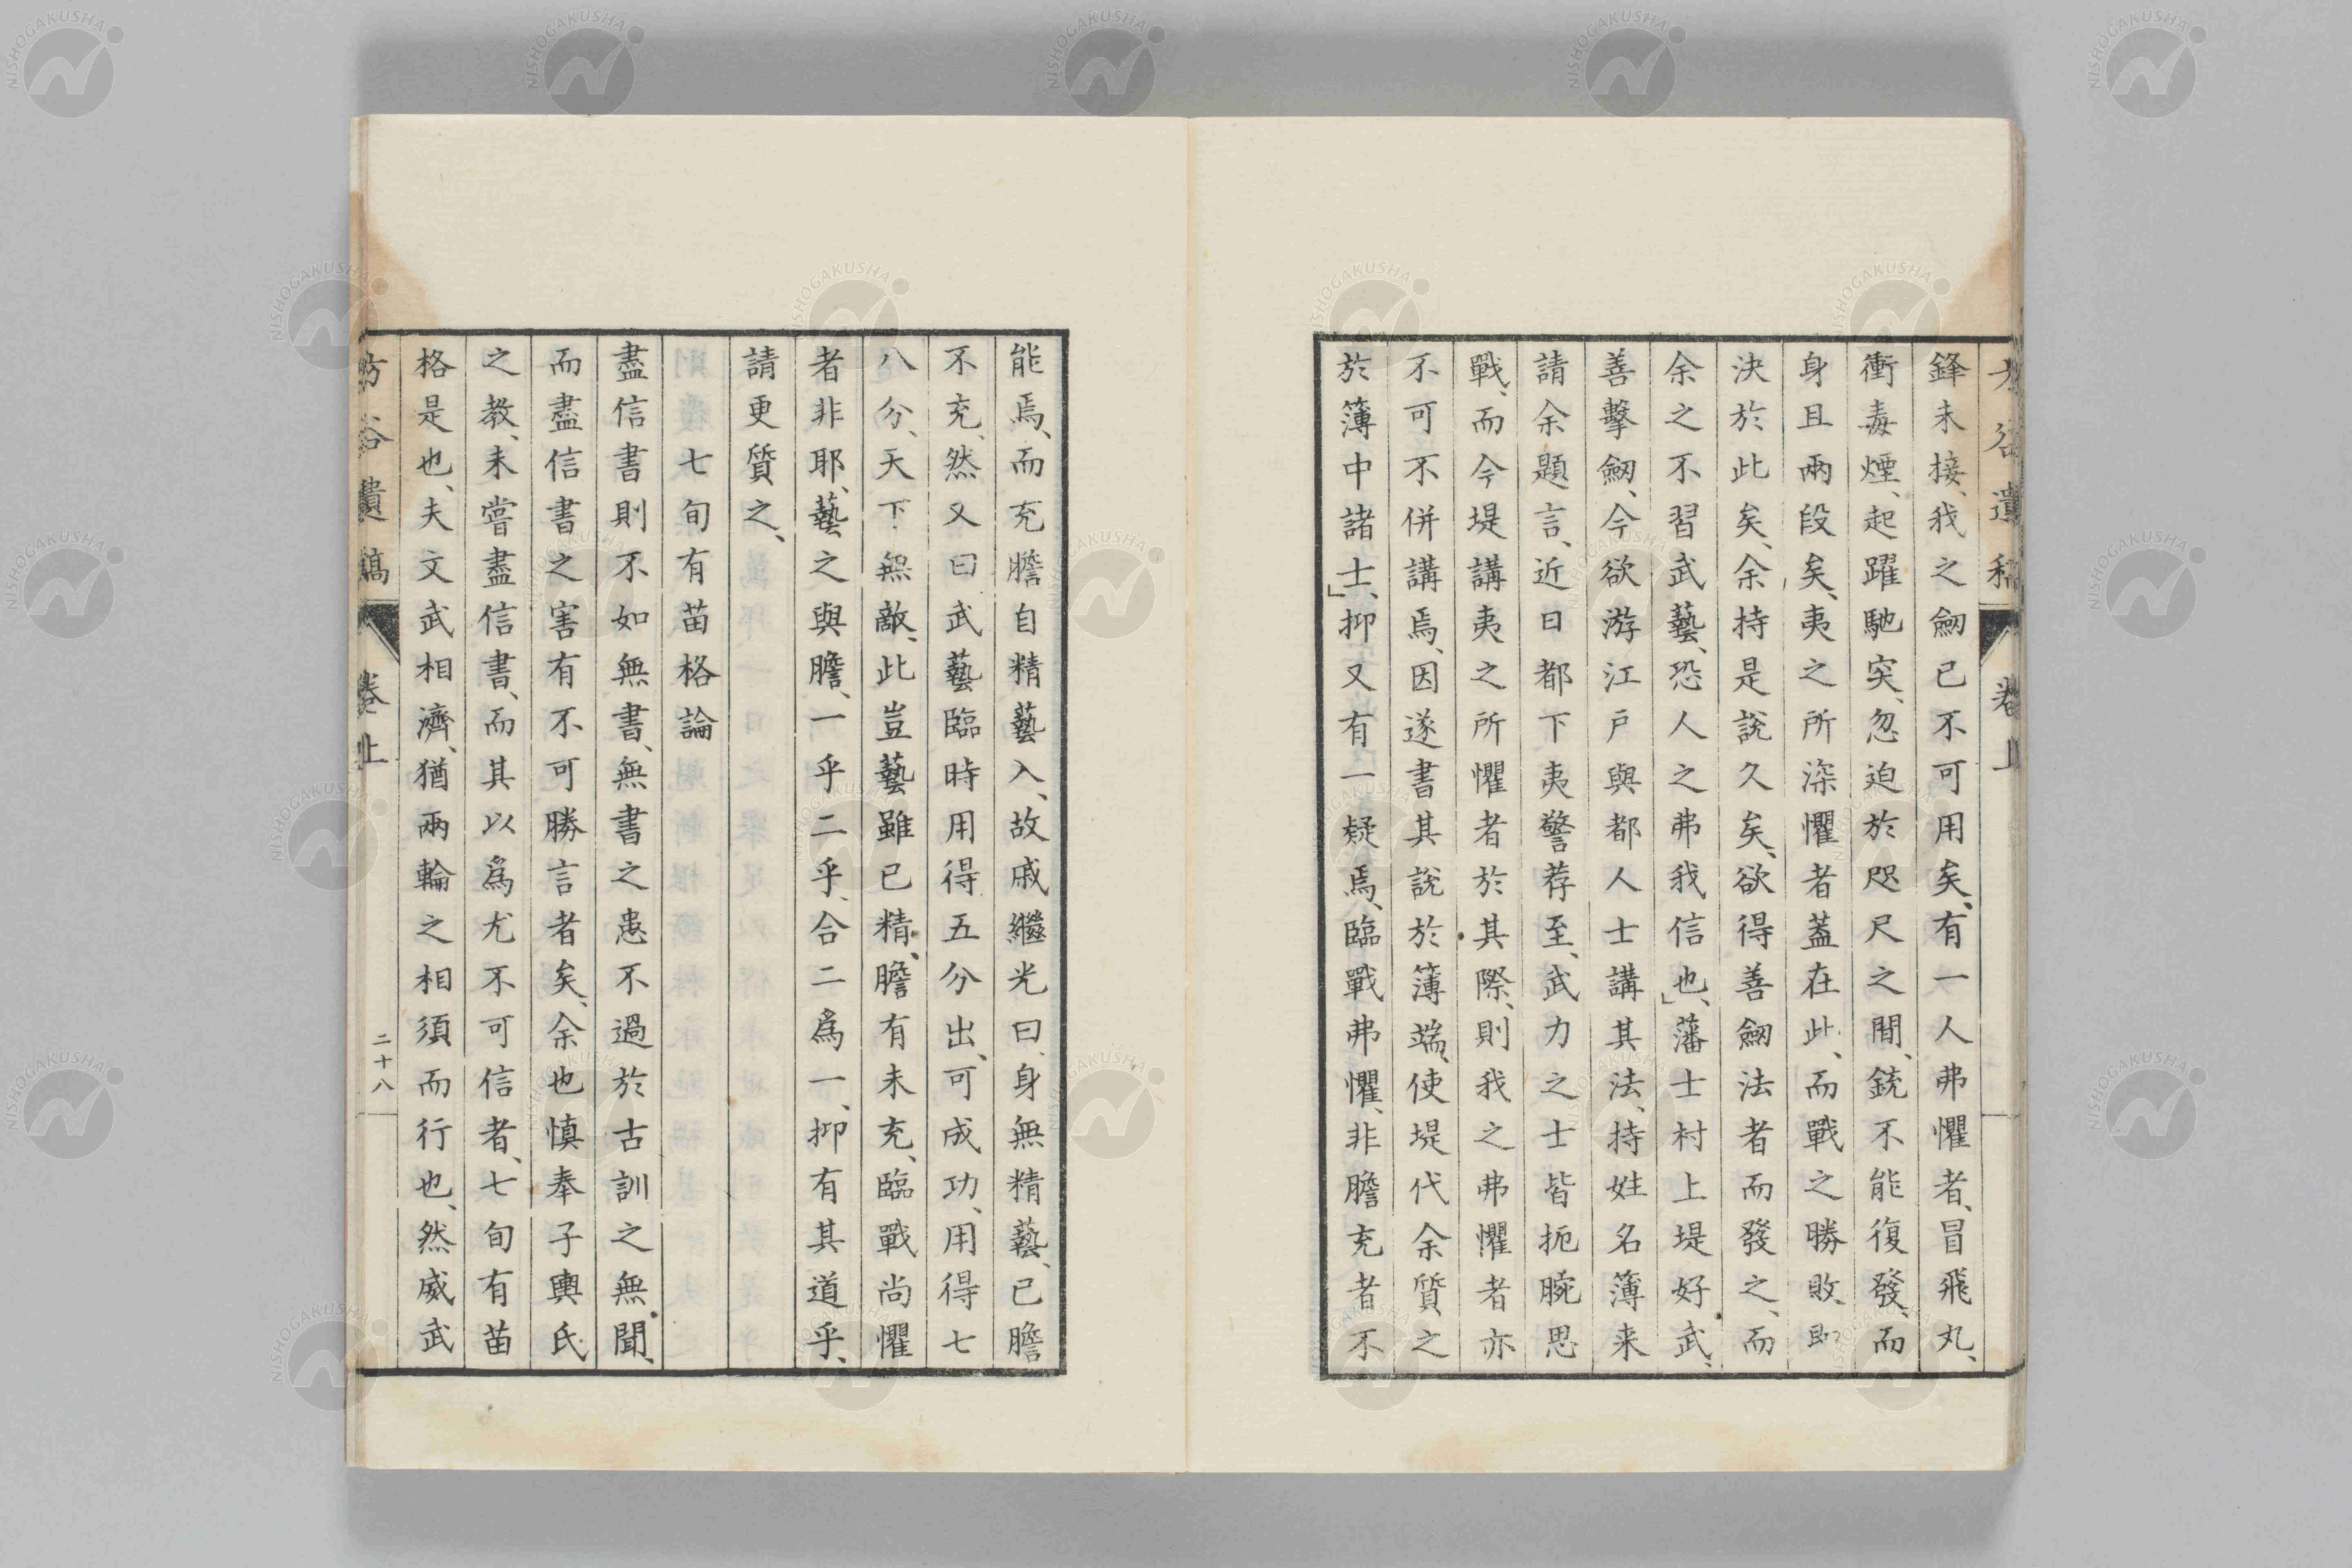 鋒未接、我之劒已不可用矣、有一人弗懼者、冒飛丸、
衝毒煙、起躍馳突、忽迫於咫尺之間、銃不能復發、而
身且兩段矣、夷之所深懼者蓋在此、而戰之勝敗、即
決於此矣、余持是説久矣、欲得善劒法者而發之、而
余之不習武藝、恐人之弗我信也、」藩士村上堤好武、
善擊劒、今欲游江戸與都人士講其法、持姓名簿来
請余題言、近日都下夷警荐至、武力之士皆扼腕思
戰、而今堤講夷之所懼者於其際、則我之弗懼者亦
不可不併講焉、因遂書其説於簿端、使堤代余質之
於簿中諸士、」抑又有一疑焉、臨戰弗懼、非膽充者不
能焉、而充膽自精藝入、故戚繼光曰、身無精藝、已膽
不充、然又曰、武藝臨時用得五分出、可成功、用得七
八分、天下無敵、此豈藝雖已精、膽有未充、臨戰尚懼
者非耶、藝之與膽、一乎二乎、合二爲一、抑有其道乎、
請更質之、
七旬有苗格論
盡信書則不如無書、無書之患不過於古訓之無聞、
而盡信書之害有不可勝言者矣、余也慎奉子輿氏
之教、未嘗盡信書、而其以爲尤不可信者、七旬有苗
格是也、夫文武相濟、猶兩輪之相須而行也、然威武
谷遺稿
卷上
二十八
NISHOGAKUSHA